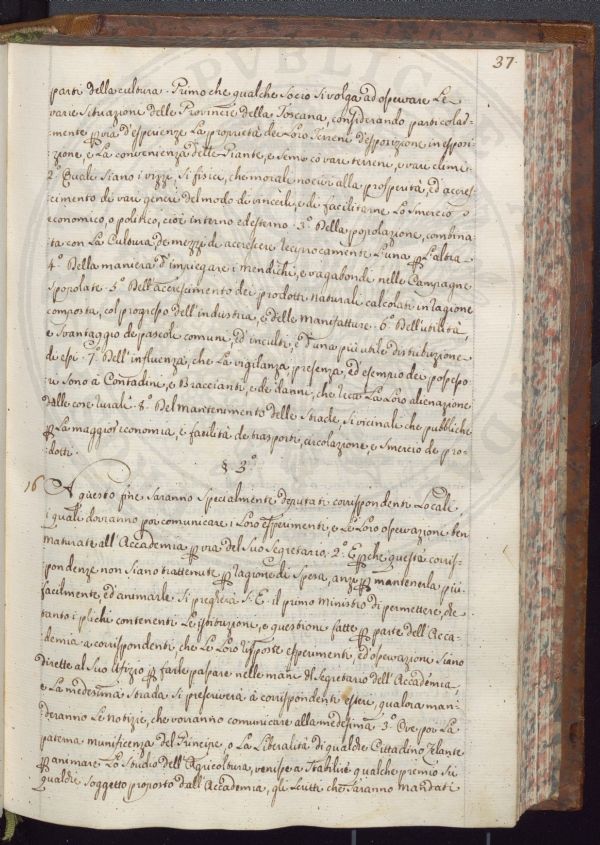 37.
parti della cultura. Primo che qualche Socio si volga ad osservare Le
varie Situazioni delle Provincie della Toscana, considerando particolar=
mente per via d'esperienze La proprietà de Loro Terreni d'esposizione in esposi=
zione, e La convenienza delle Piante, e semi co vari terreni, e vari climi.
2.° Quali siano i vizzi, sì fisici, che morali nocivi alla prosperità, ed accres=
cimento di vari generi del modo di vincerli, e di facilitarne Lo Smercio
economico, o politico, cioè interno ed esterno. 3.° Della popolazione, combina=
ta con La Cultura de mezzi di accrescere reciprocamente L'una per L'altra
4.° Della maniera d'impiegare i mendichi, e vagabondi nelle Campagne
spopolate. 5.° Dell'accrescimento dei prodotti naturali calcolati in ragione
composta, col progresso dell'industria, e delle Manifatture. 6.° Dell'utilità,
e Svantaggio de pascoli comuni, ed inculti, e d'una più utile distribuzione
di essi. 7.° Dell'influenza, che La vigilanza, presenza, ed esempio dei possesso
ri sono à Contadini, e Braccianti, e de danni, che reca La Loro alienazione
dalle cose rurali. 8.° Del mantenimento delle Strade, sì vicinali che pubbliche
per La maggior economia, e facilità de trasporti, circolazione, e Smercio de pro=
dotti.
§ 3.°
16 A questo fine saranno specialmente deputati corrispondenti Locali,
i quali dovranno poi comunicare i Loro esperimenti, e Le Loro osservazioni ben
maturate all'Accademia per via del Suo Segretario. 2.° E perche questa corris=
pondenze non siano trattenute per ragione di Spesa, anzi per mantenerla più
facilmente, ed animarle. Si pregherà S. E. il primo Ministro di permettere, che
tanto i plichi contenenti Le istruzioni, e questione fatte per parte dell'Acca=
demia a corrispondenti, che Le Loro risposte esperimenti, ed osservazione siano
dirette al Suo Ufizio per farle passare nelle mani del Segretario dell'Accademia,
e La medesima strada si preserverà à corrispondenti esteri, qualora man=
deranno Le notizie, che vorranno comunicare alla medesima 3.° Ove poi La
paterna munificenza del Principe, o La Liberalità di qualche Cittadino Zelante
per animare Lo Studio dell'Agricoltura, venisse a Stabilire qualche premio Su
qualche soggetto proposto dall'Accademia, gli scritti che saranno mandati